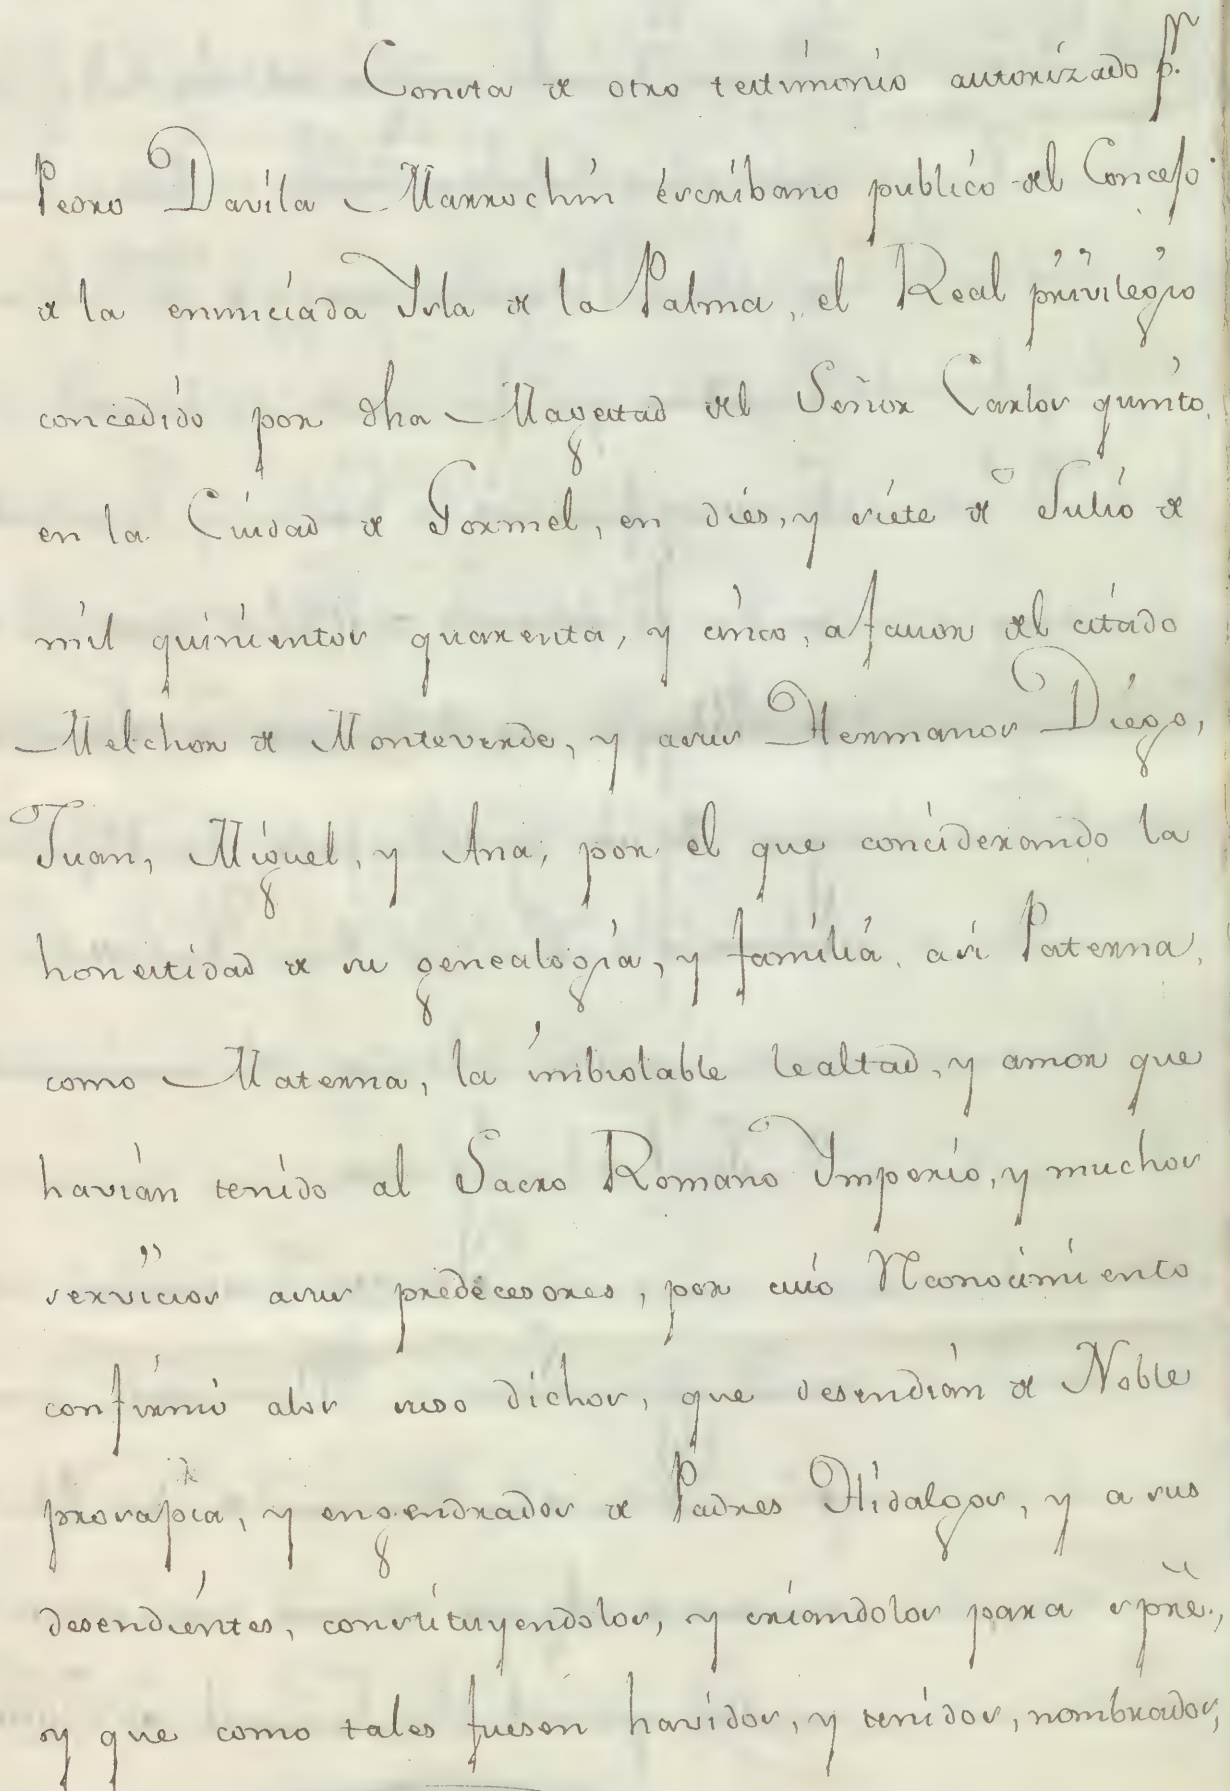 Consta de otro testimonio autorizado pr.
Pedro Davila Marrochin éscribano publico del Concejo
de la enunciada Ysla de la Palma, el Real privilegio
concedido por dha Magestad del Señor Carlos quinto,
en la Ciudad de Gormel, en dies, y siete de Julio de
mil quinientos quarenta, y cinco, a fauor del citado
Melchor de Monteverde, y asus Hermanos Diego,
Juan, Miguel, y Ana, por el que conciderando la
honestidad de su genealogia, y familia, asi Paterna,
como Materna, la inbiolable lealtad, y amor que
havian tenido al Sacro Romano Ymperio, y muchos
servicios asus predecesores, por cuio Rconocimiento
confirmó alos suso dichos, que desendian de Noble
prosapia, y engendrados de Padres Hidalgos, y a sus
desendientes, constituyendolos, y criandolos para spre.,
y que como tales fuesen havidos, y tenidos, nombrados,